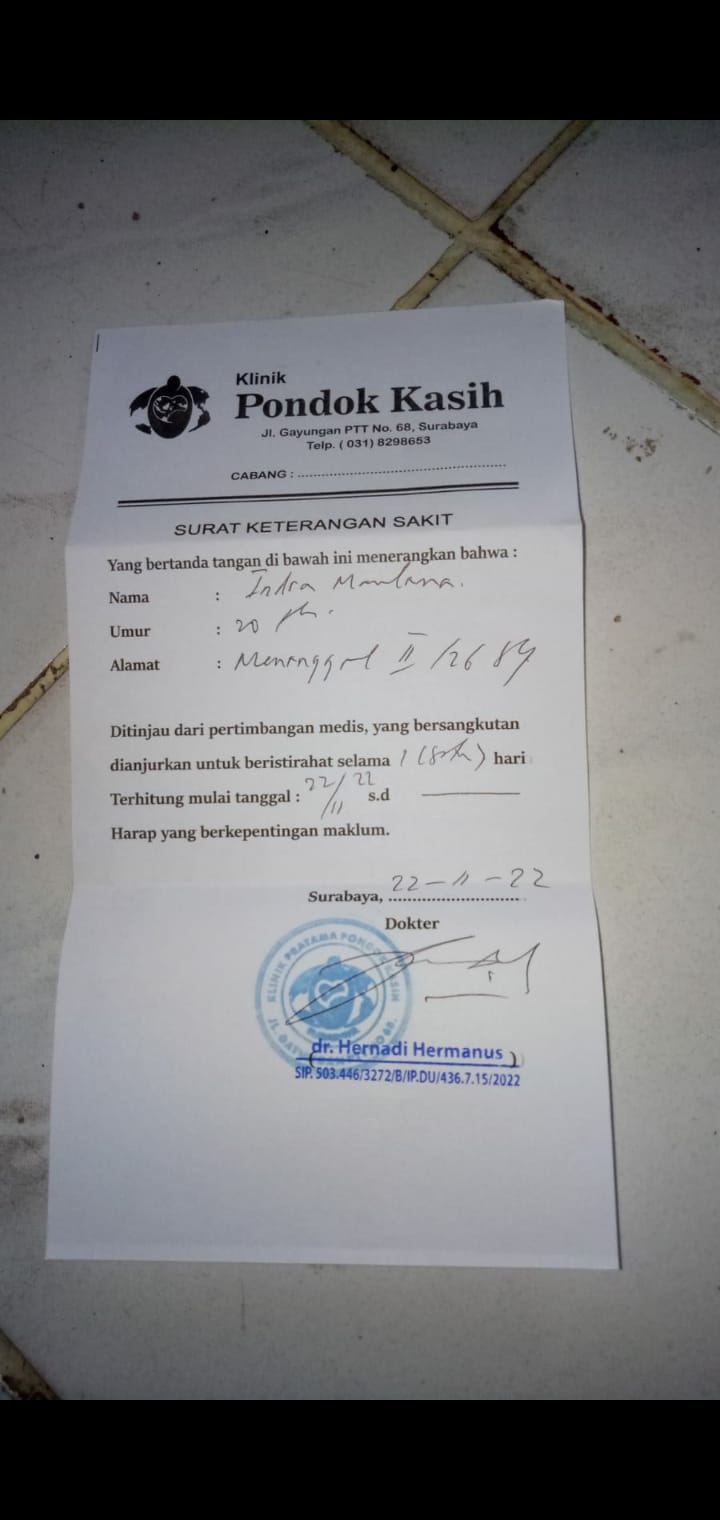 Klinik
Pondok Kasih
Jl. Gayungan PTT No. 68, Surabaya
Telp. ( 031) 8298653
CABANG : ........................................................
SURAT KETERANGAN SAKIT
Yang bertanda tangan di bawah ini menerangkan bahwa :
Nama : Indra Maulana.
Umur : 20 th.
Alamat : Menanggal II /26
Ditinjau dari pertimbangan medis, yang bersangkutan
dianjurkan untuk beristirahat selama 1 (satu) hari
Terhitung mulai tanggal : 22/11 22 s.d
Harap yang berkepentingan maklum.
Surabaya, 22-11-22
Dokter
KLINIK PRATAMA PONDOK KASIH
dr. Hernadi Hermanus
SIP. 503.446/3272/B/IP.DU/436.7.15/2022